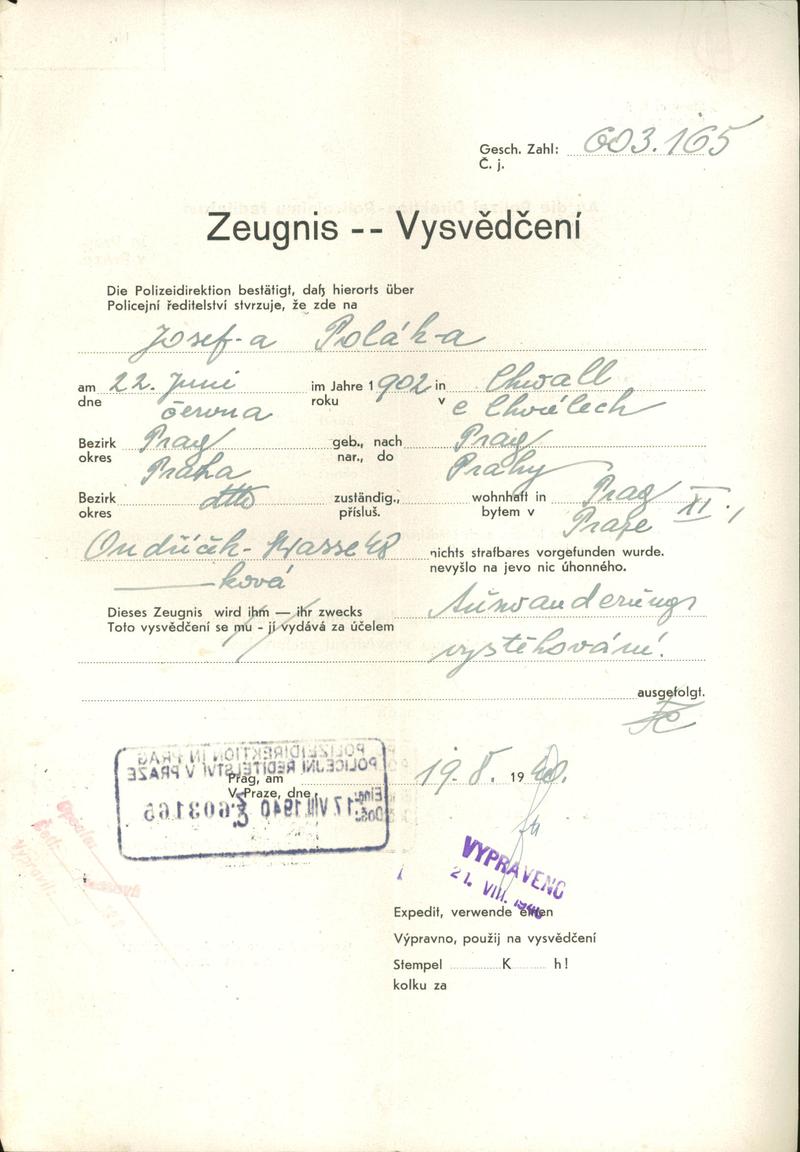 Gesch. Zahl: 603.165
Č. j.
Zeugnis -- Vysvědčení
Die Polizeidirektion bestätigt, daß hierorts über
Policejní ředitelství stvrzuje, že zde na
Josef-a Polák-a
am 22. Juni im Jahre 1902 in Chwall
dne června roku v e Chválech
Bezirk Prag geb., nach Prag
okres Praha nar., do Prahy
Bezirk dtto zuständig., wohnhaft in Prag XI.,
okres přísluš. bytem v Praze
Ondříček-Strasse 48 nichts strafbares vorgefunden wurde.
ková nevyšlo na jevo nic úhonného.
Dieses Zeugnis wird ihm — ihr zwecks Auswanderung
Toto vysvědčení se mu - jí vydává za účelem
vystěhování.
ausgefolgt.
POLIZEIDIREKTION IN PRAG
POLICEJNÍ ŘEDITELSTVÍ V PRAZE
Eing.
Došlo: 17. VIII. 1940 Z Č. 603165
Prag, am 19. 8. 1940.
V Praze, dne
VYPRAVENO
21. VIII. 1940
Expedit, verwende einen
Výpravno, použij na vysvědčení
Stempel K h!
kolku za